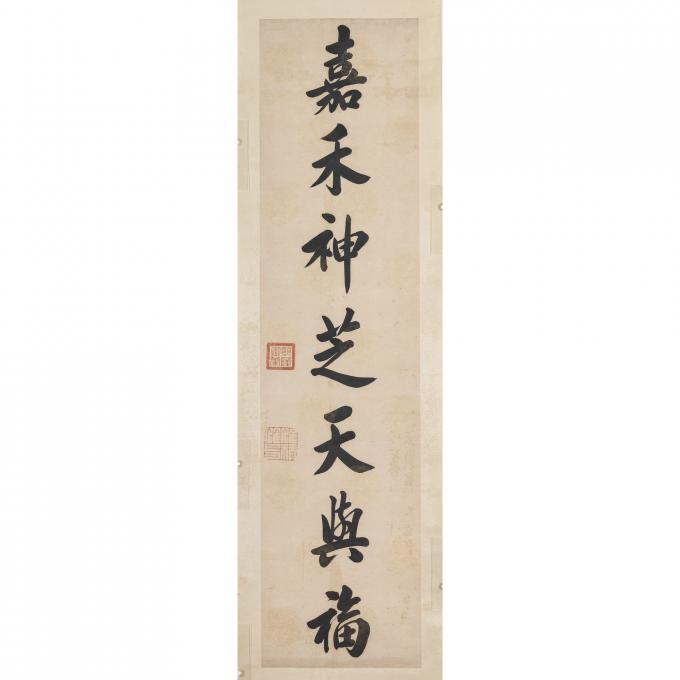 嘉禾神芝天與福